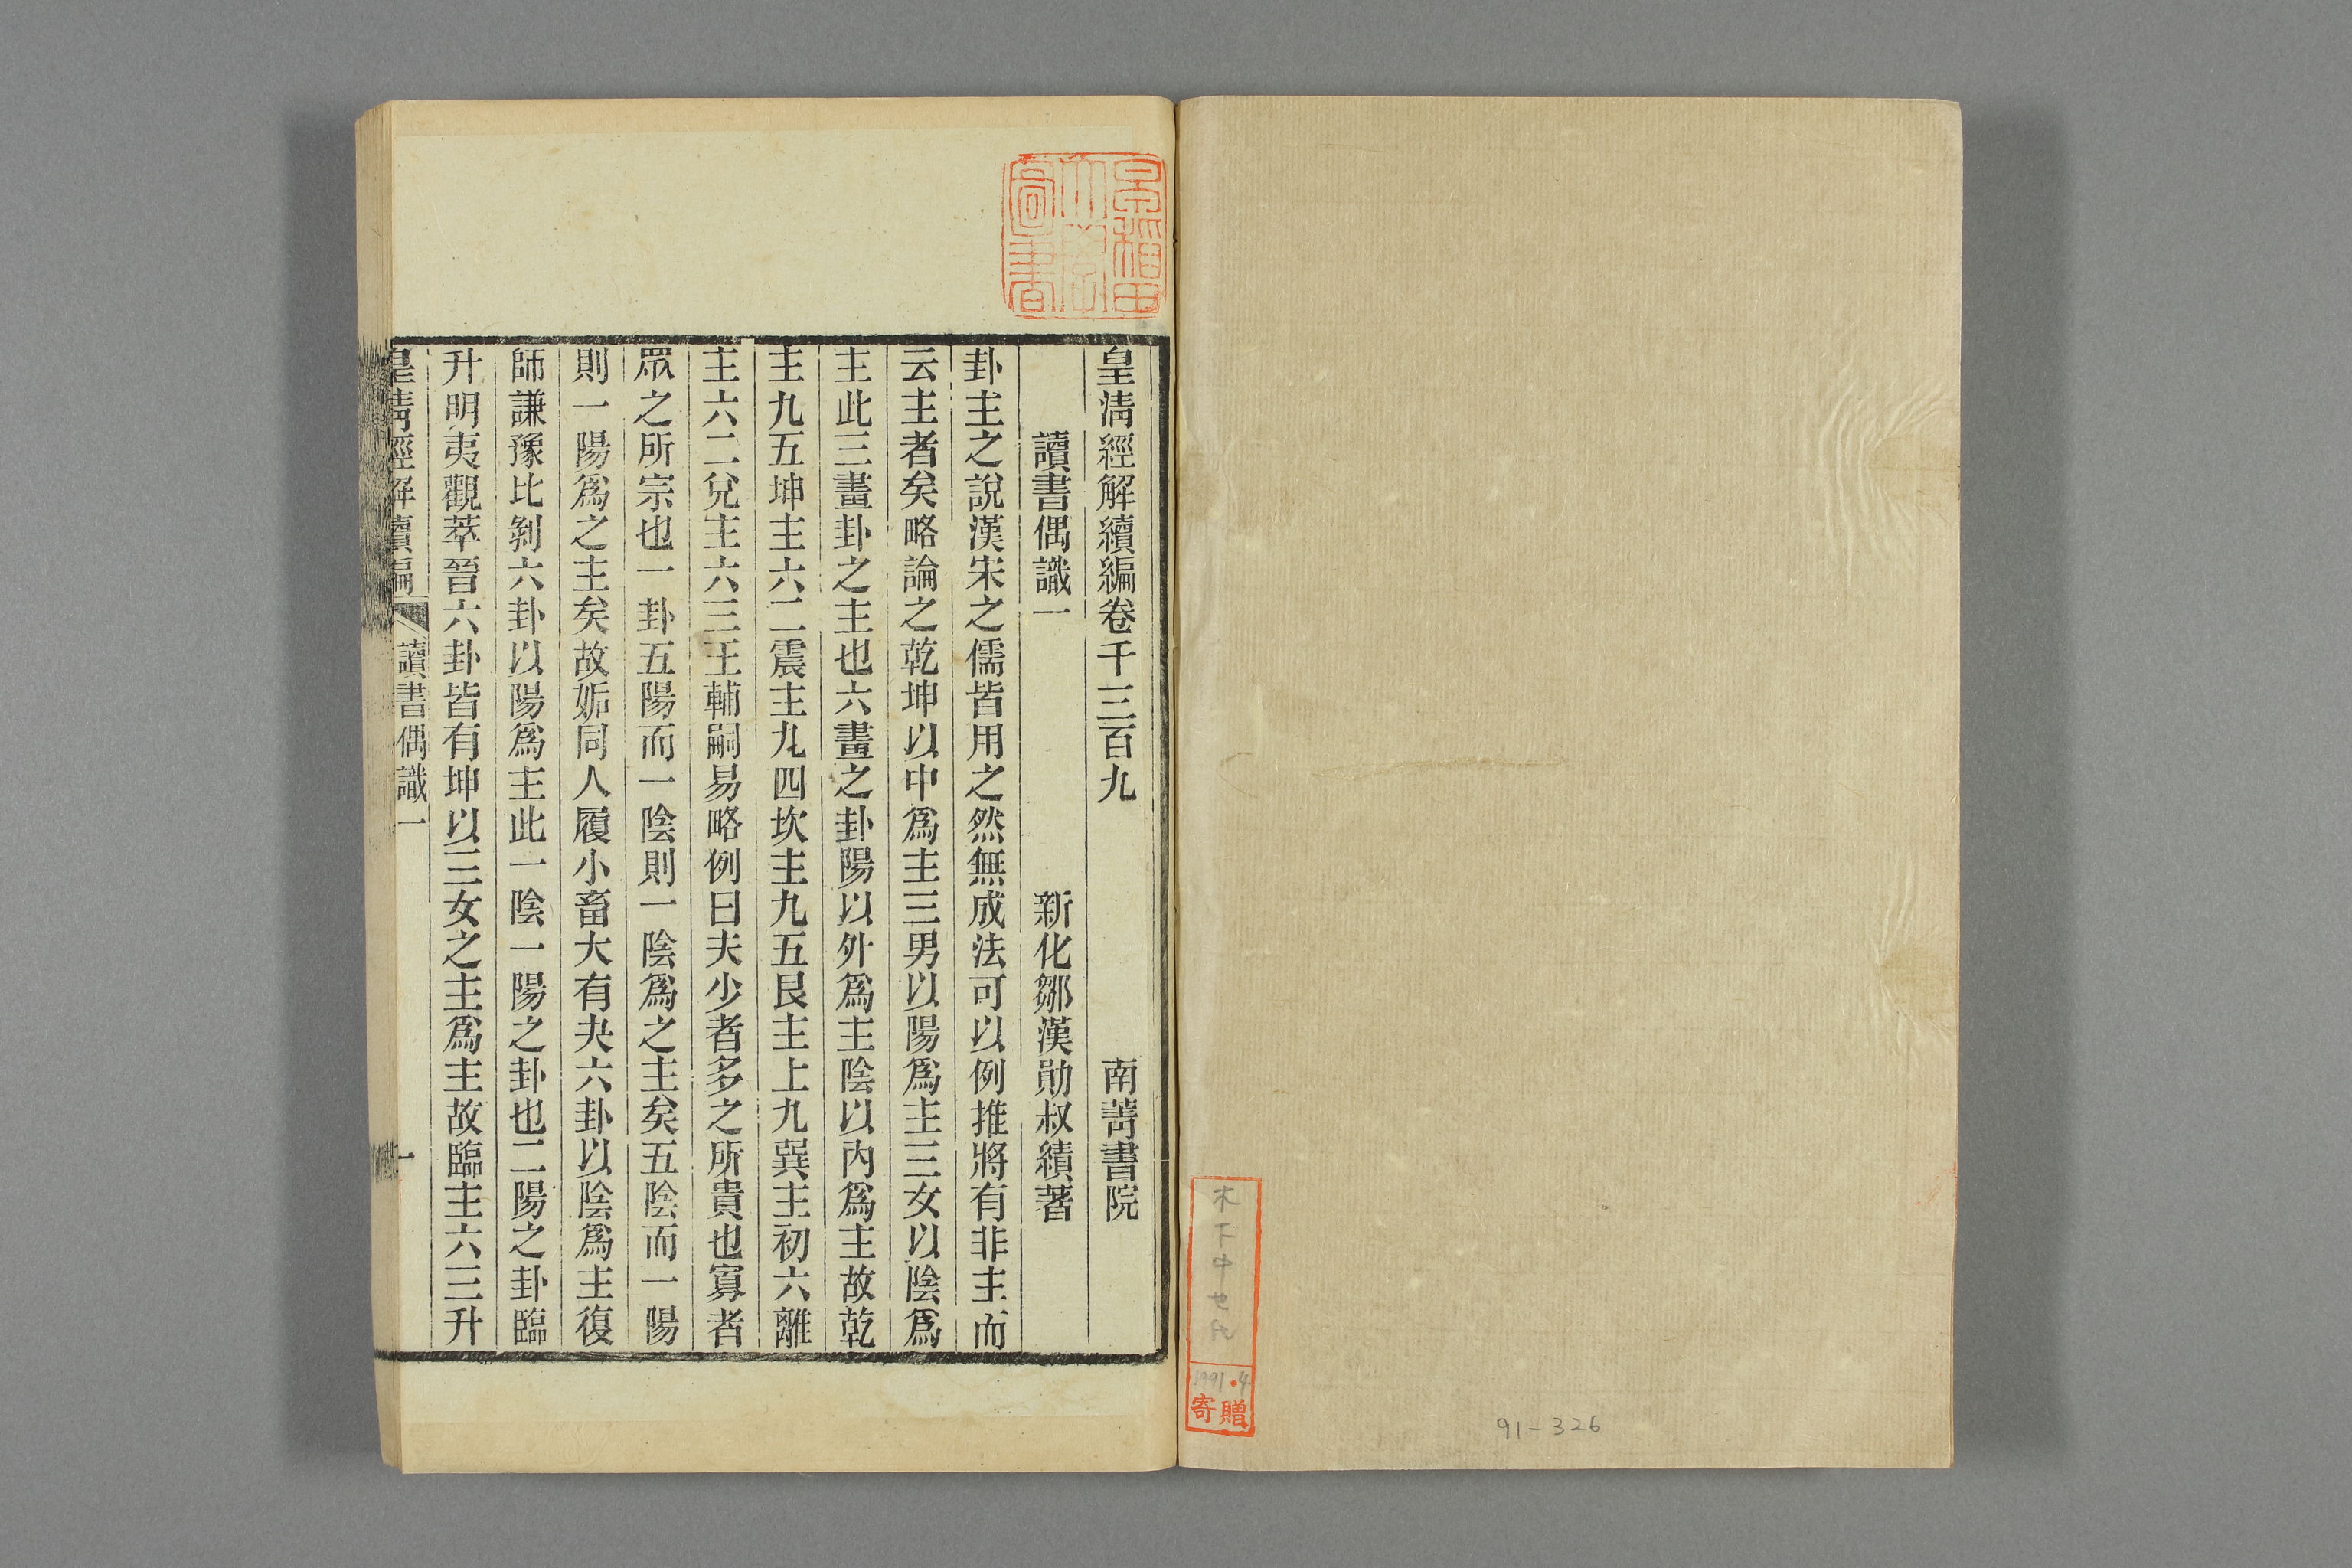 皇清經解續編卷千三百九　南菁書院
讀書偶識一　新化鄒漢勛叔績著
卦主之說漢宋之儒皆用之然無成法可以例推將有非主而
云主者矣略論之乾坤以中爲主三男以陽爲主三女以陰爲
主此三畫卦之主也六畫之卦陽以外爲主陰以內爲主故乾
主九五坤主六二震主九四坎主九五艮主上九巽主初六離
主六二兌主六三王輔嗣易略例曰夫少者多之所貴也寡者
眾之所宗也一卦五陽而一陰則一陰爲之主矣五陰而一陽
則一陽爲之主矣故姤同人履小畜大有夬六卦以陰爲主復
師謙豫比剝六卦以陽爲主此一陰一陽之卦也二陽之卦臨
升明夷觀萃晉六卦皆有坤以三女之主爲主故臨主六三升
皇清經解續編　讀書偶識一　一
早稲田大學圖書
木下中せ氏
1991.4
寄贈
91-326